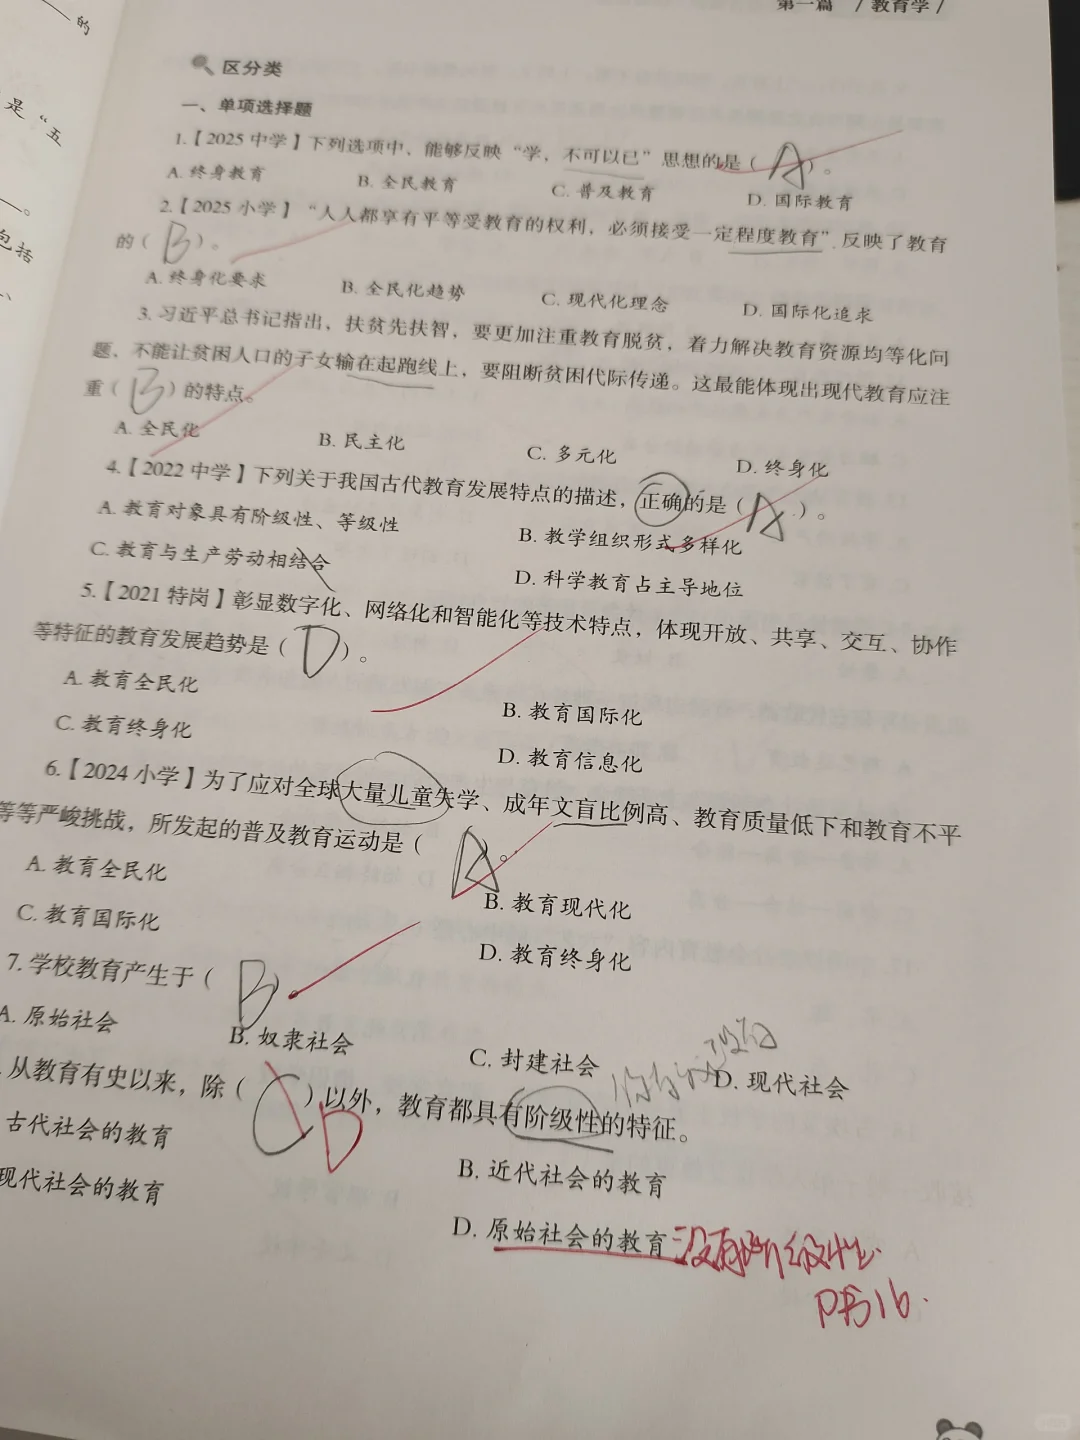 的
是“五
包括
第一篇 / 教育学 /
区分类
一、单项选择题
1.【2025 中学】下列选项中、能够反映“学，不可以已”思想的是（ A ）。
A. 终身教育 B. 全民教育 C. 普及教育 D. 国际教育
2.【2025 小学】“人人都享有平等受教育的权利，必须接受一定程度教育”，反映了教育
的（ B ）。
A. 终身化要求 B. 全民化趋势 C. 现代化理念 D. 国际化追求
3. 习近平总书记指出，扶贫先扶智，要更加注重教育脱贫，着力解决教育资源均等化问
题、不能让贫困人口的子女输在起跑线上，要阻断贫困代际传递。这最能体现出现代教育应注
重（ B ）的特点。
A. 全民化 B. 民主化 C. 多元化 D. 终身化
4.【2022 中学】下列关于我国古代教育发展特点的描述，正确的是（ A ）。
A. 教育对象具有阶级性、等级性 B. 教学组织形式多样化
C. 教育与生产劳动相结合 D. 科学教育占主导地位
5.【2021 特岗】彰显数字化、网络化和智能化等技术特点，体现开放、共享、交互、协作
等特征的教育发展趋势是（ D ）。
A. 教育全民化 B. 教育国际化
C. 教育终身化 D. 教育信息化
6.【2024 小学】为了应对全球大量儿童失学、成年文盲比例高、教育质量低下和教育不平
等等严峻挑战，所发起的普及教育运动是（ A 。
A. 教育全民化 B. 教育现代化
C. 教育国际化 D. 教育终身化
7. 学校教育产生于（ B ）。
A. 原始社会 B. 奴隶社会 C. 封建社会 D. 现代社会
没有
从教育有史以来，除（ C D ）以外，教育都具有阶级性的特征。
古代社会的教育 B. 近代社会的教育
现代社会的教育 D. 原始社会的教育 没有阶级性.
P书16.